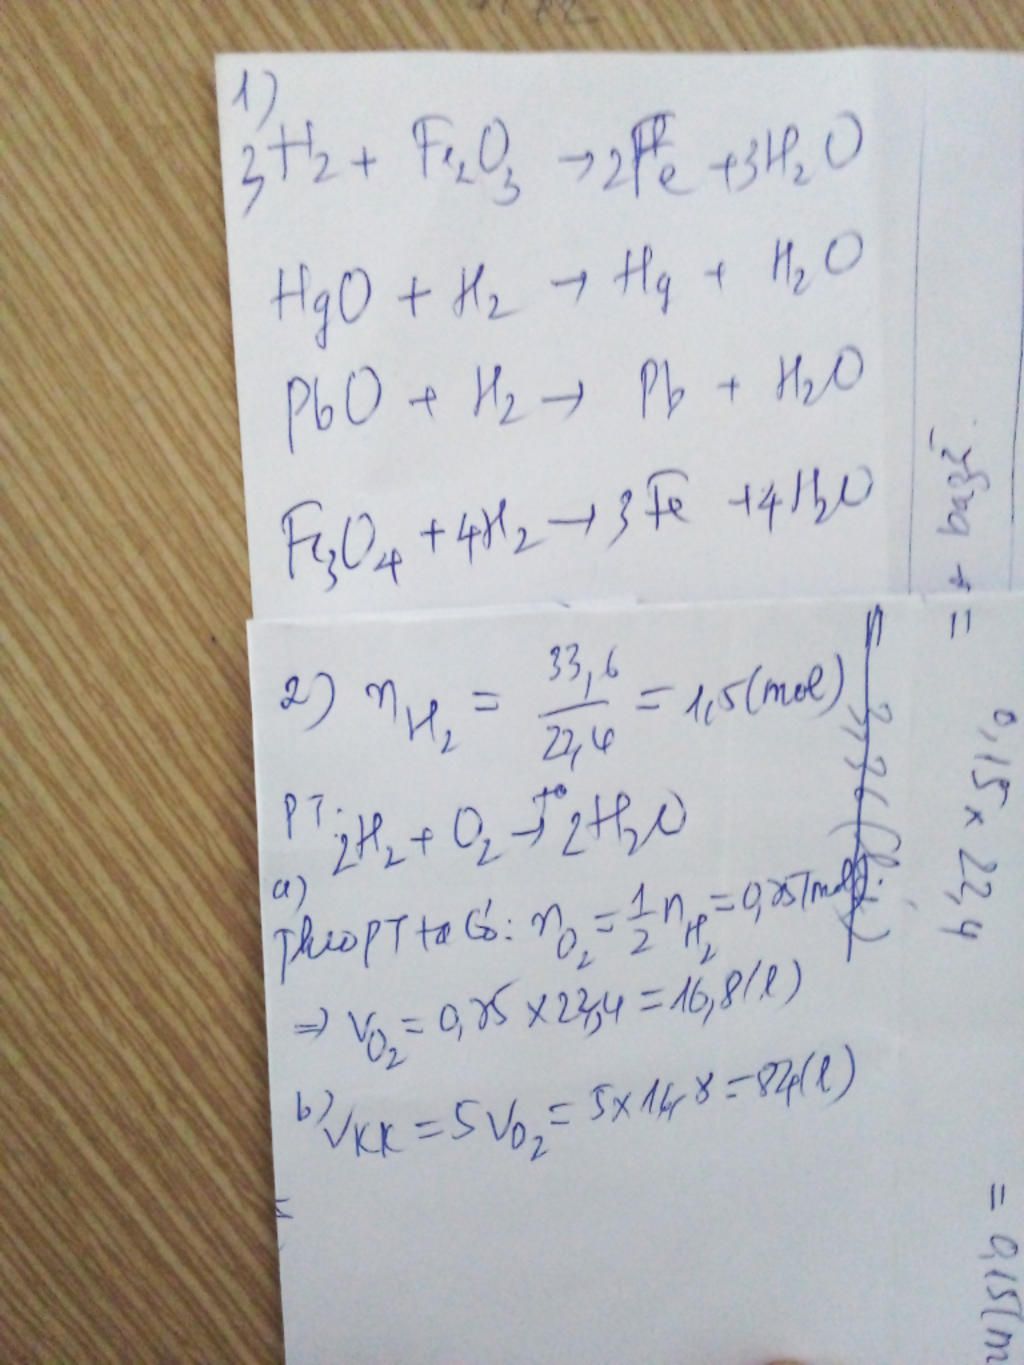 1)
3H2 + Fe2O3 → 2Fe + 3H2O
HgO + H2 → Hg + H2O
PbO + H2 → Pb + H2O
Fe3O4 + 4H2 → 3Fe + 4H2O
2) nH2 = 33,6/22,4 = 1,5(mol)
PT: 2H2 + O2 →t° 2H2O
a)
Theo PT ta có: nO2 = 1/2 nH2 = 0,75(mol)
=> VO2 = 0,75 x 22,4 = 16,8(l)
b) VKK = 5VO2 = 5 x 16,8 = 84(l)
0,15 x 22,4
= 0,15(m